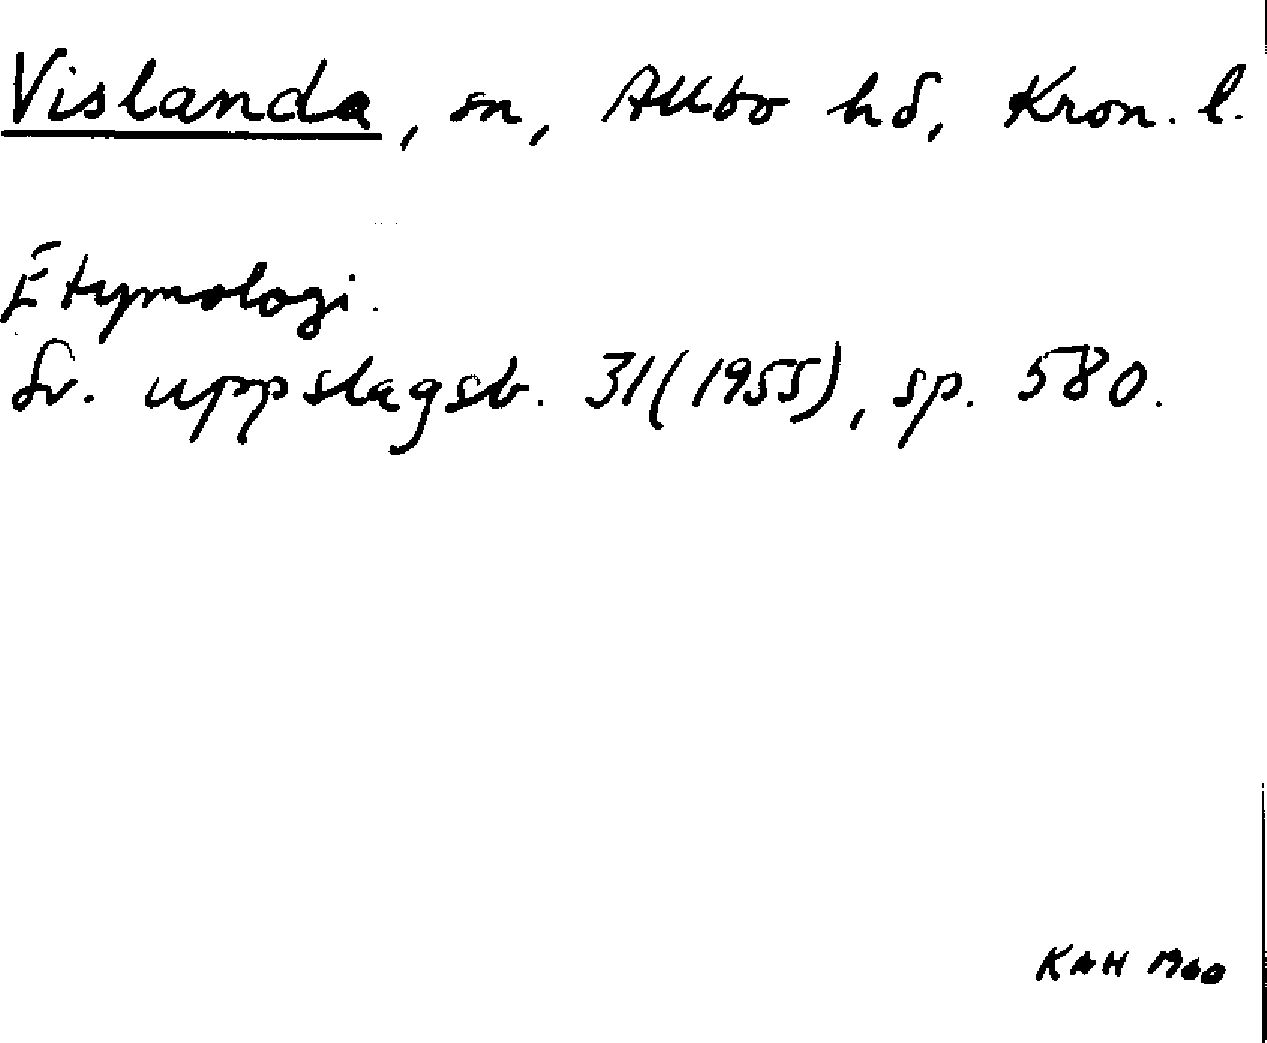 Vislanda, sn, Allbo hd, Kron. l.
Etymologi.
Sv. uppslagsb. 31(1955), sp. 580.
KAH 1960